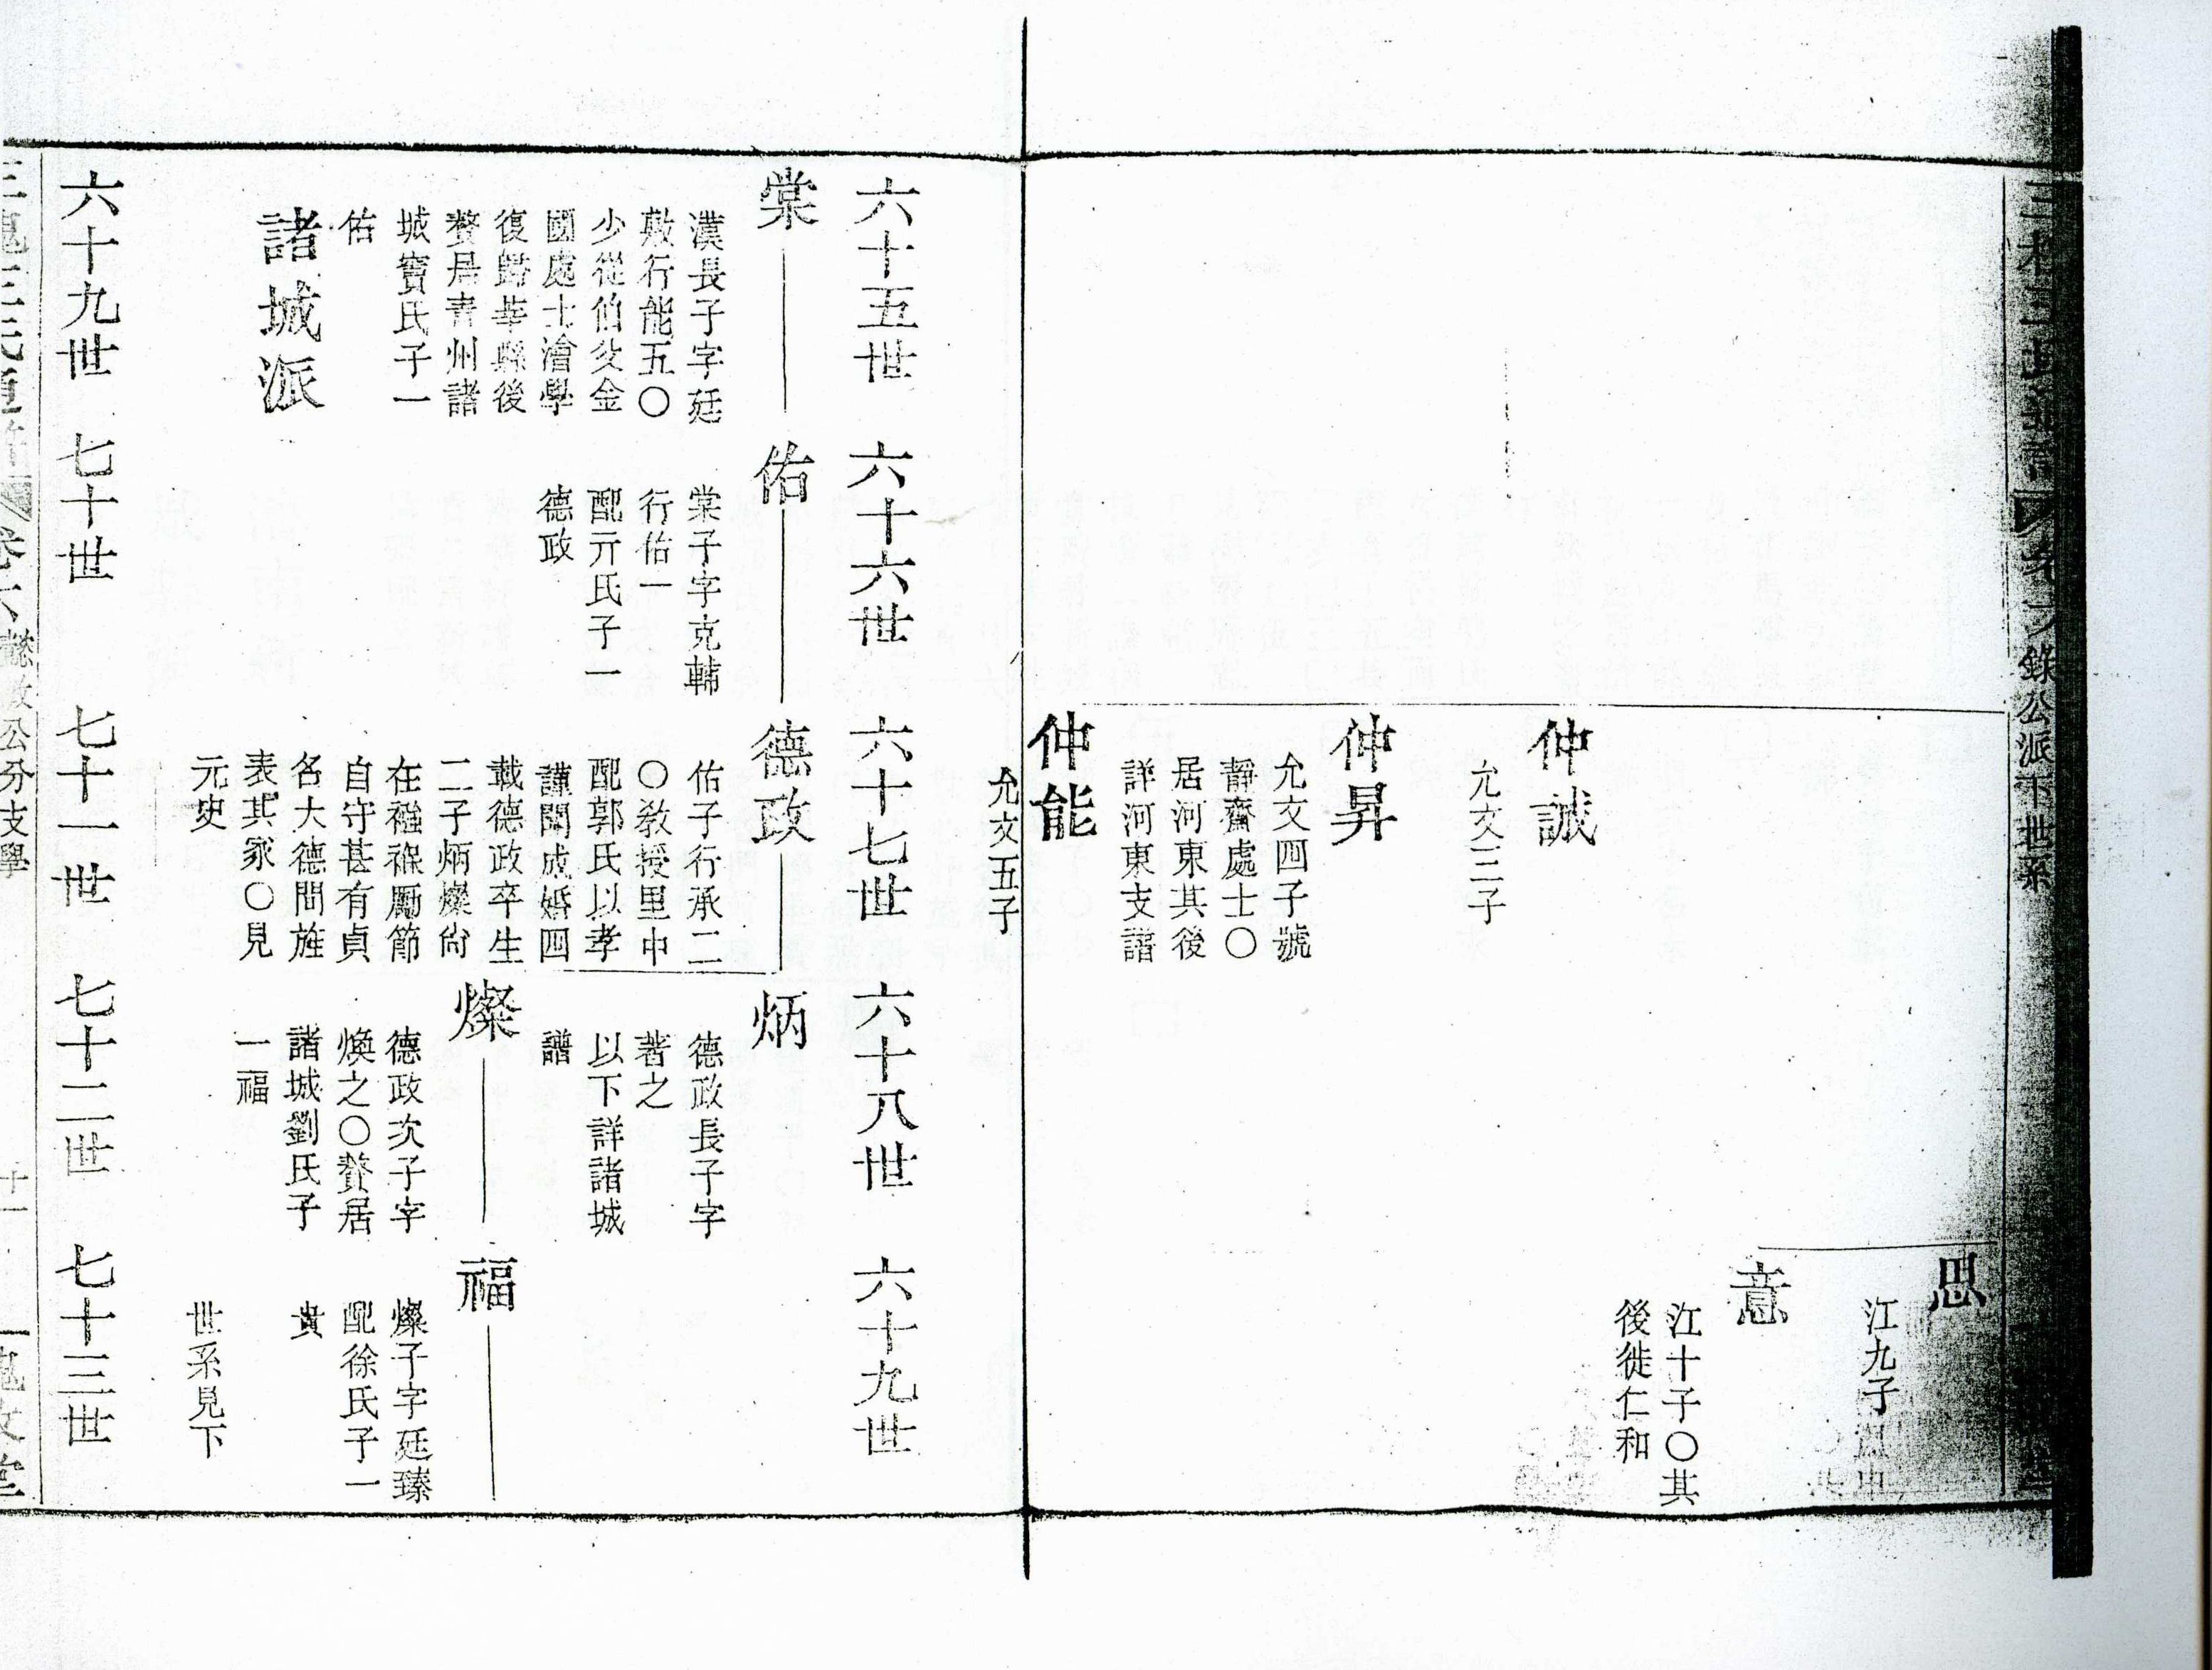 思
江九子
意
江十子〇其
後徙仁和
仲誠
允文三子
仲昇
允文四子號
靜齋處士〇
居河東其後
詳河東支譜
仲能
允文五子
錄公派下世系
六十五世
六十六世
六十七世
六十八世
六十九世
棠
漢長子字廷
敷行能五〇
少從伯父金
國處士澮學
復歸莘縣後
贅居青州諸
城竇氏子一
佑
諸城派
佑
棠子字克輔
行佑一
配亓氏子一
德政
德政
佑子行承二
〇敎授里中
配郭氏以孝
謹聞成婚四
載德政卒生
二子炳燦尙
在襁褓厲節
自守甚有貞
名大德間旌
表其家〇見
元史
炳
德政長子字
著之
以下詳諸城
譜
燦
德政次子字
煥之〇贅居
諸城劉氏子
一福
福
燦子字廷臻
配徐氏子一
貴
世系見下
六十九世
七十世
七十一世
七十二世
七十三世
公分支學